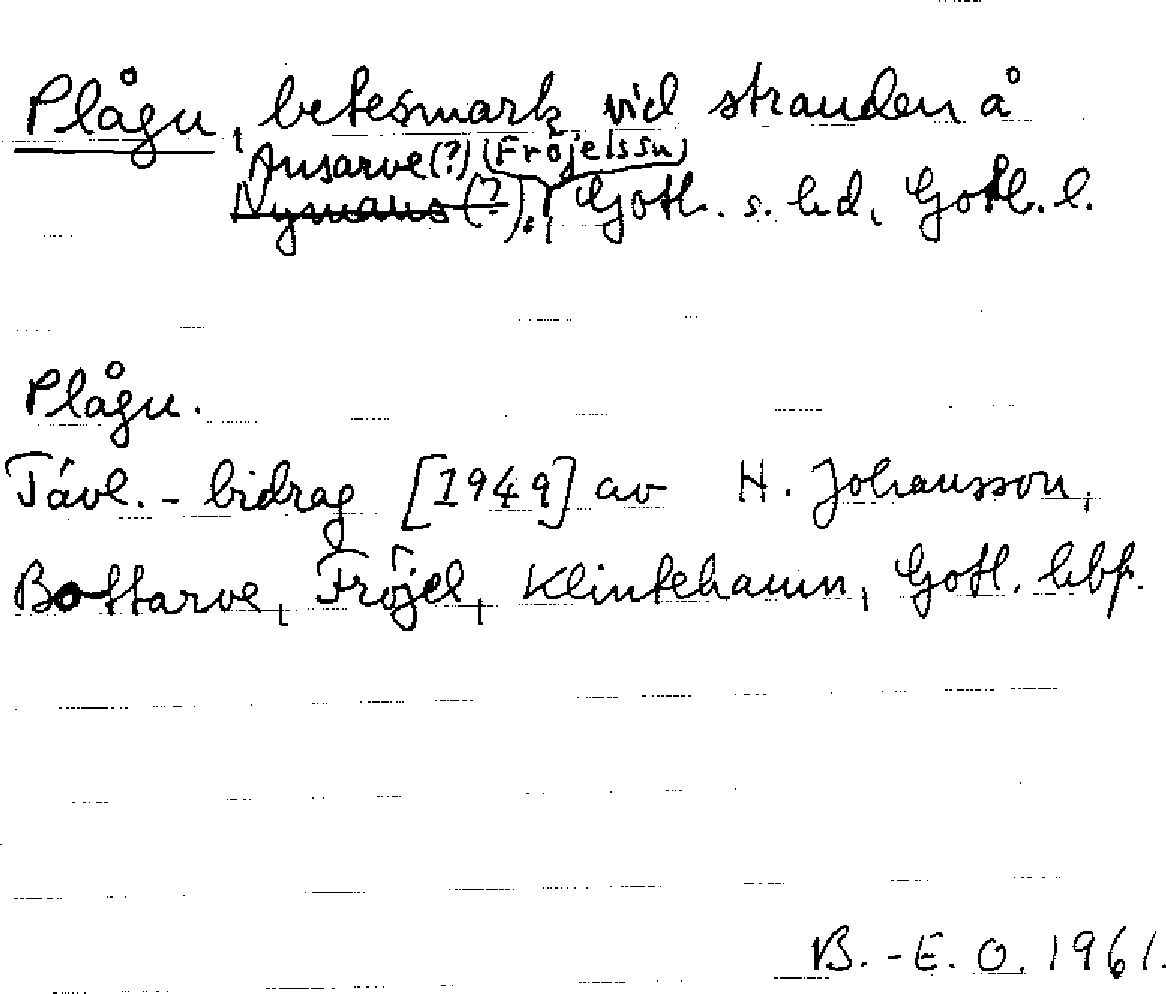 Plågu, betesmark vid stranden å
Ansarve (?) (Fröjels sn)
Nymans (?), Gotl. s. hd, Gotl. l.
Plågu.
Tävl.-bidrag [1949] av H. Johansson,
Bottarve, Fröjel, Klintehamn, Gotl. hbf.
B.-E. O. 1961.